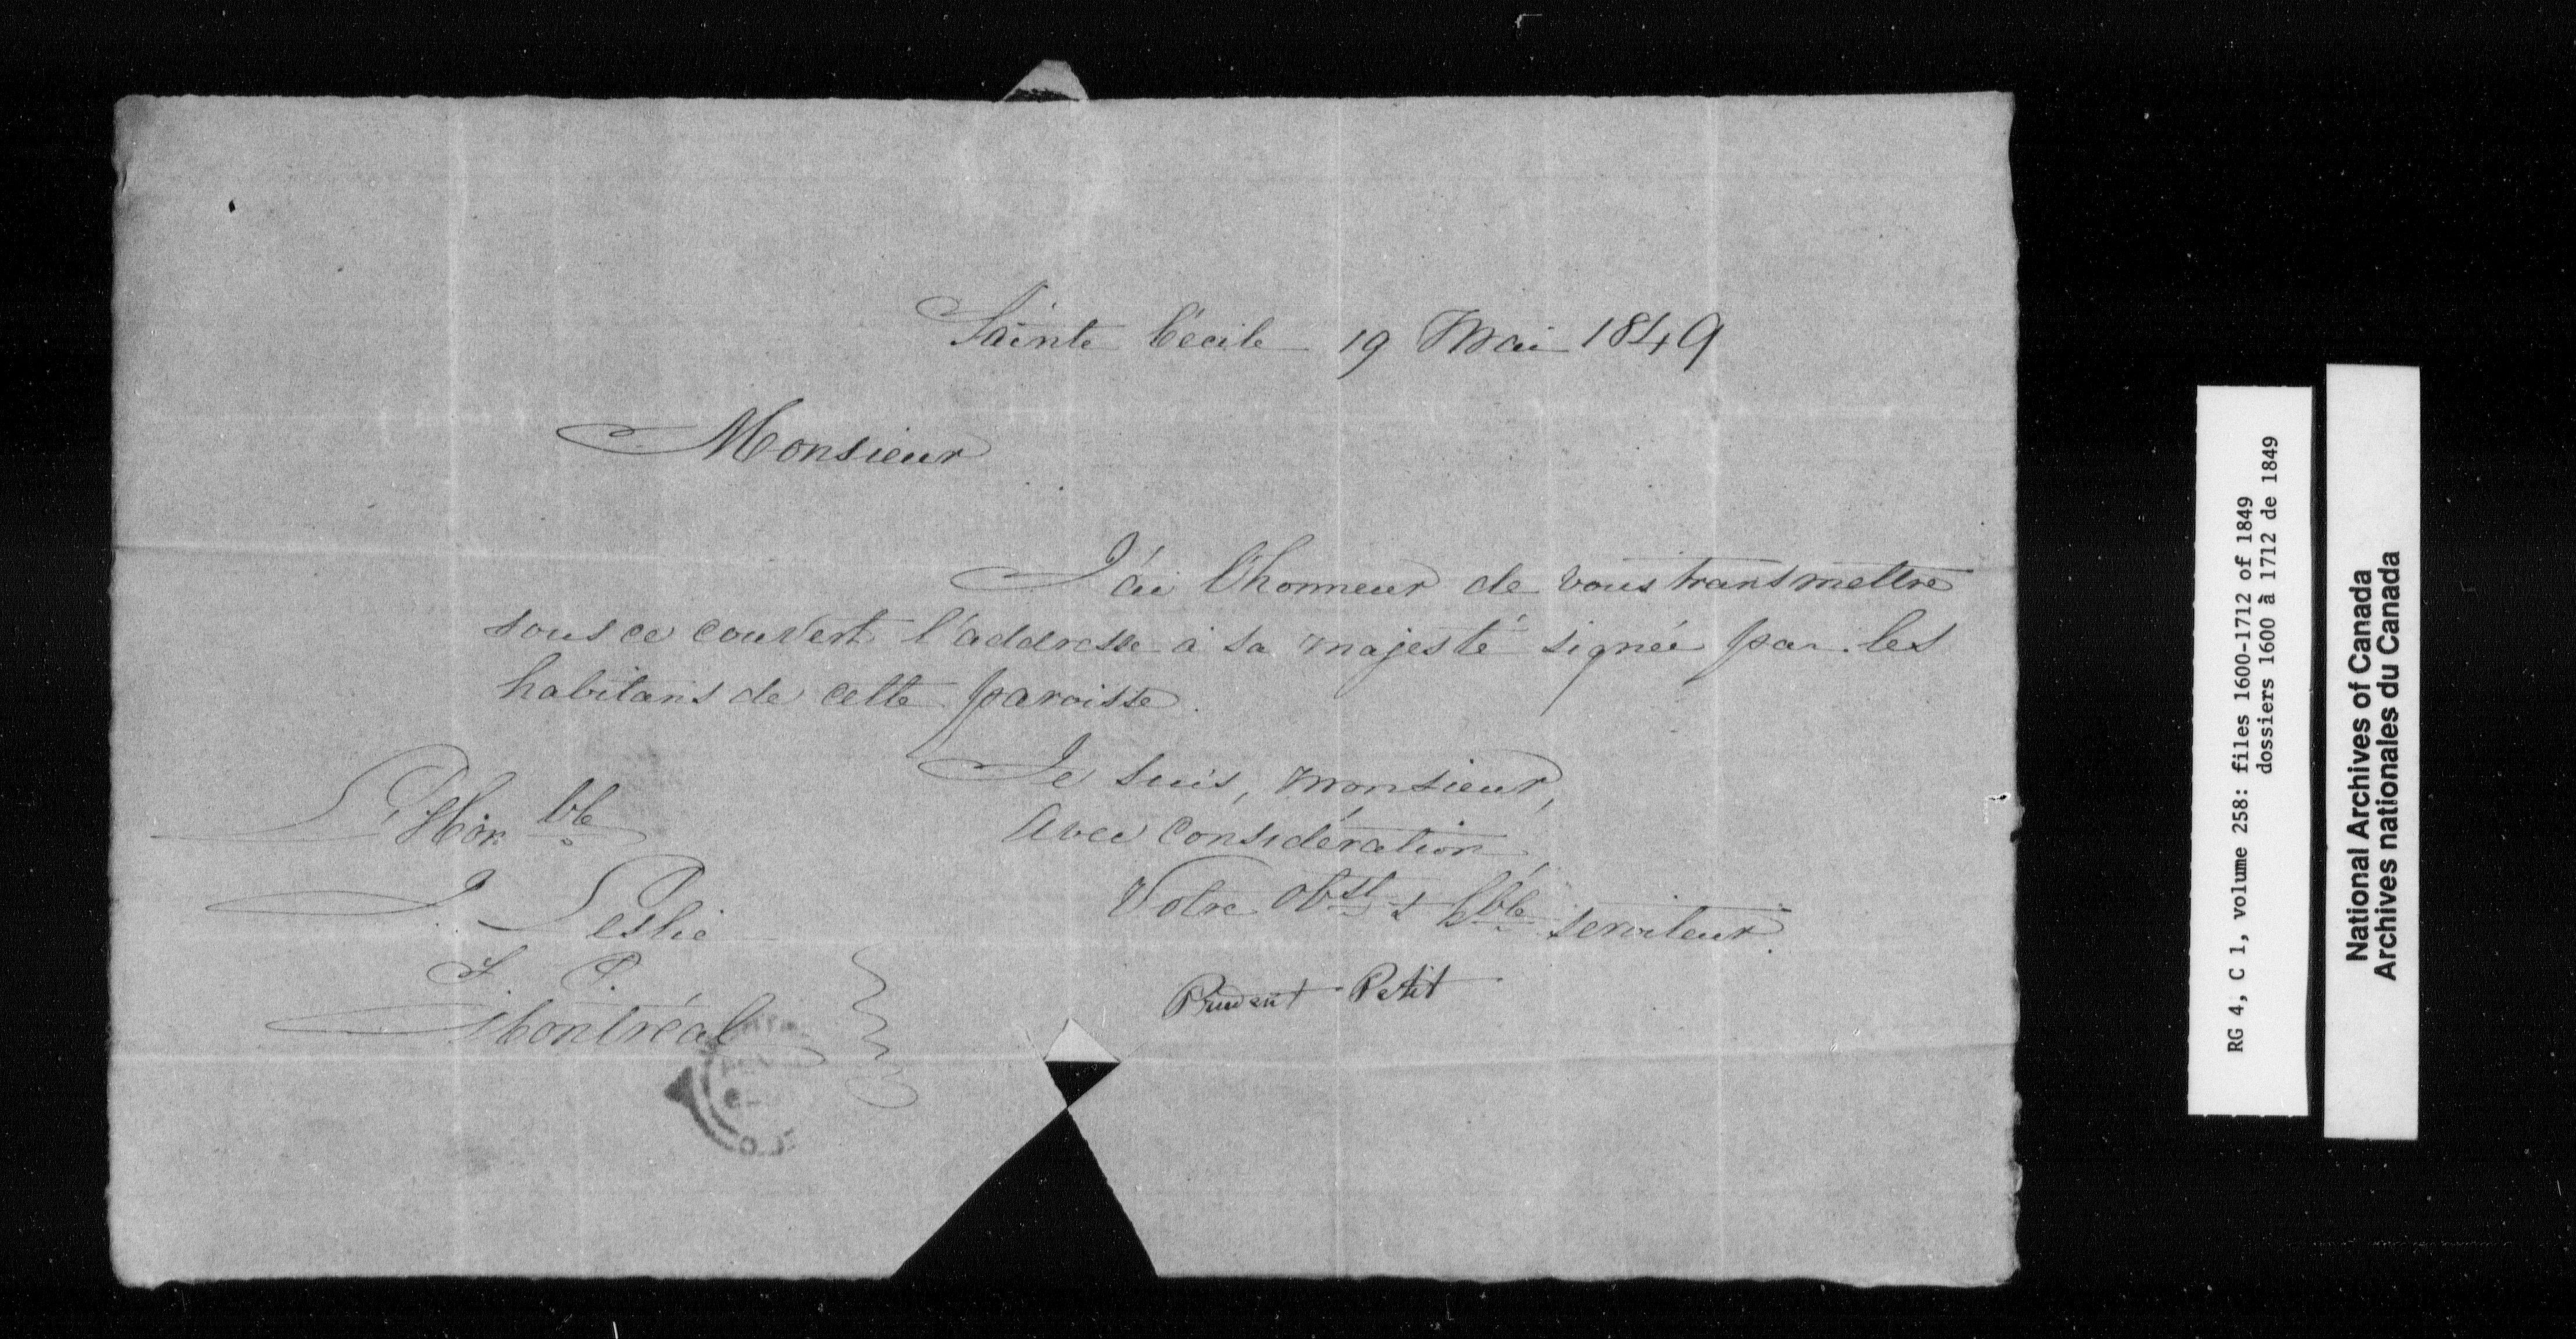 Sainte Cécile 19 Mai 1849
Monsieur
J'ai l'honneur de vous transmettre
sous ce couvert l'addresse à sa majesté signée par les
habitans de cette paroisse.
Je suis, monsieur,
Avec considération,
Votre obst & hble serviteur.
Prudent Petit
L'Honble
J. Leslie
S. P.
Montréal
RG 4, C 1, volume 258: files 1600-1712 of 1849
dossiers 1600 à 1712 de 1849
National Archives of Canada
Archives nationales du Canada